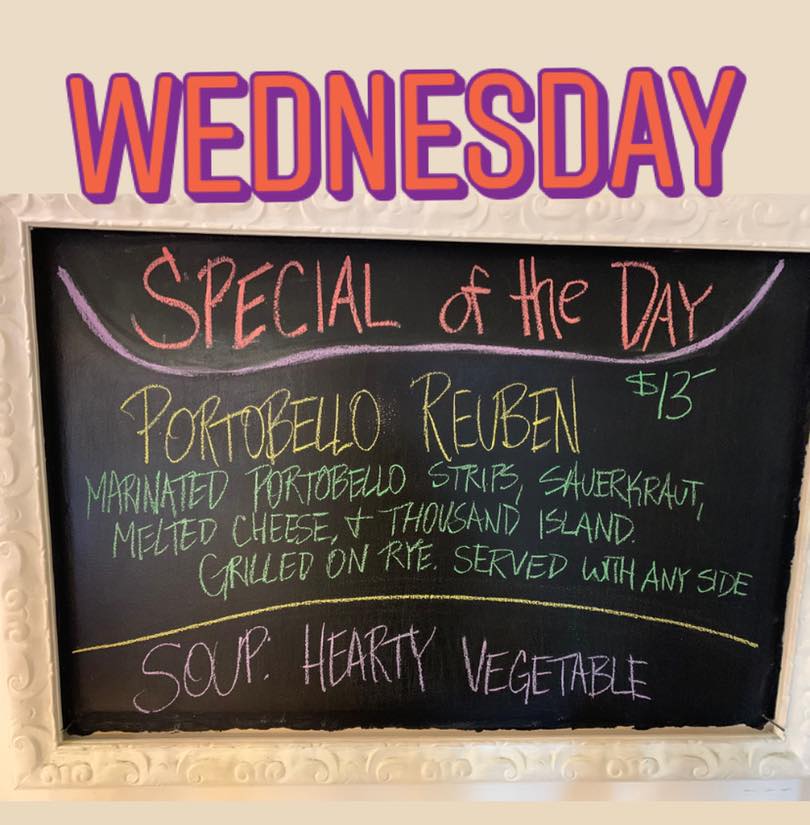 WEDNESDAY
SPECIAL of the DAY
PORTOBELLO REUBEN $13
MARINATED PORTOBELLO STRIPS, SAUERKRAUT,
MELTED CHEESE, + THOUSAND ISLAND.
GRILLED ON RYE. SERVED WITH ANY SIDE
SOUP: HEARTY VEGETABLE